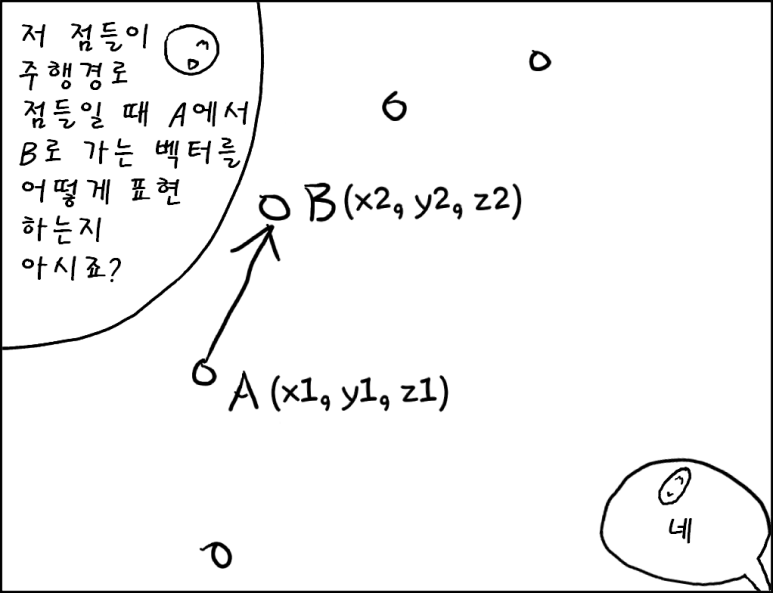 저 점들이
주행경로
점들일 때 A에서
B로 가는 벡터를
어떻게 표현
하는지
아시죠?
B (x2, y2, z2)
A (x1, y1, z1)
네